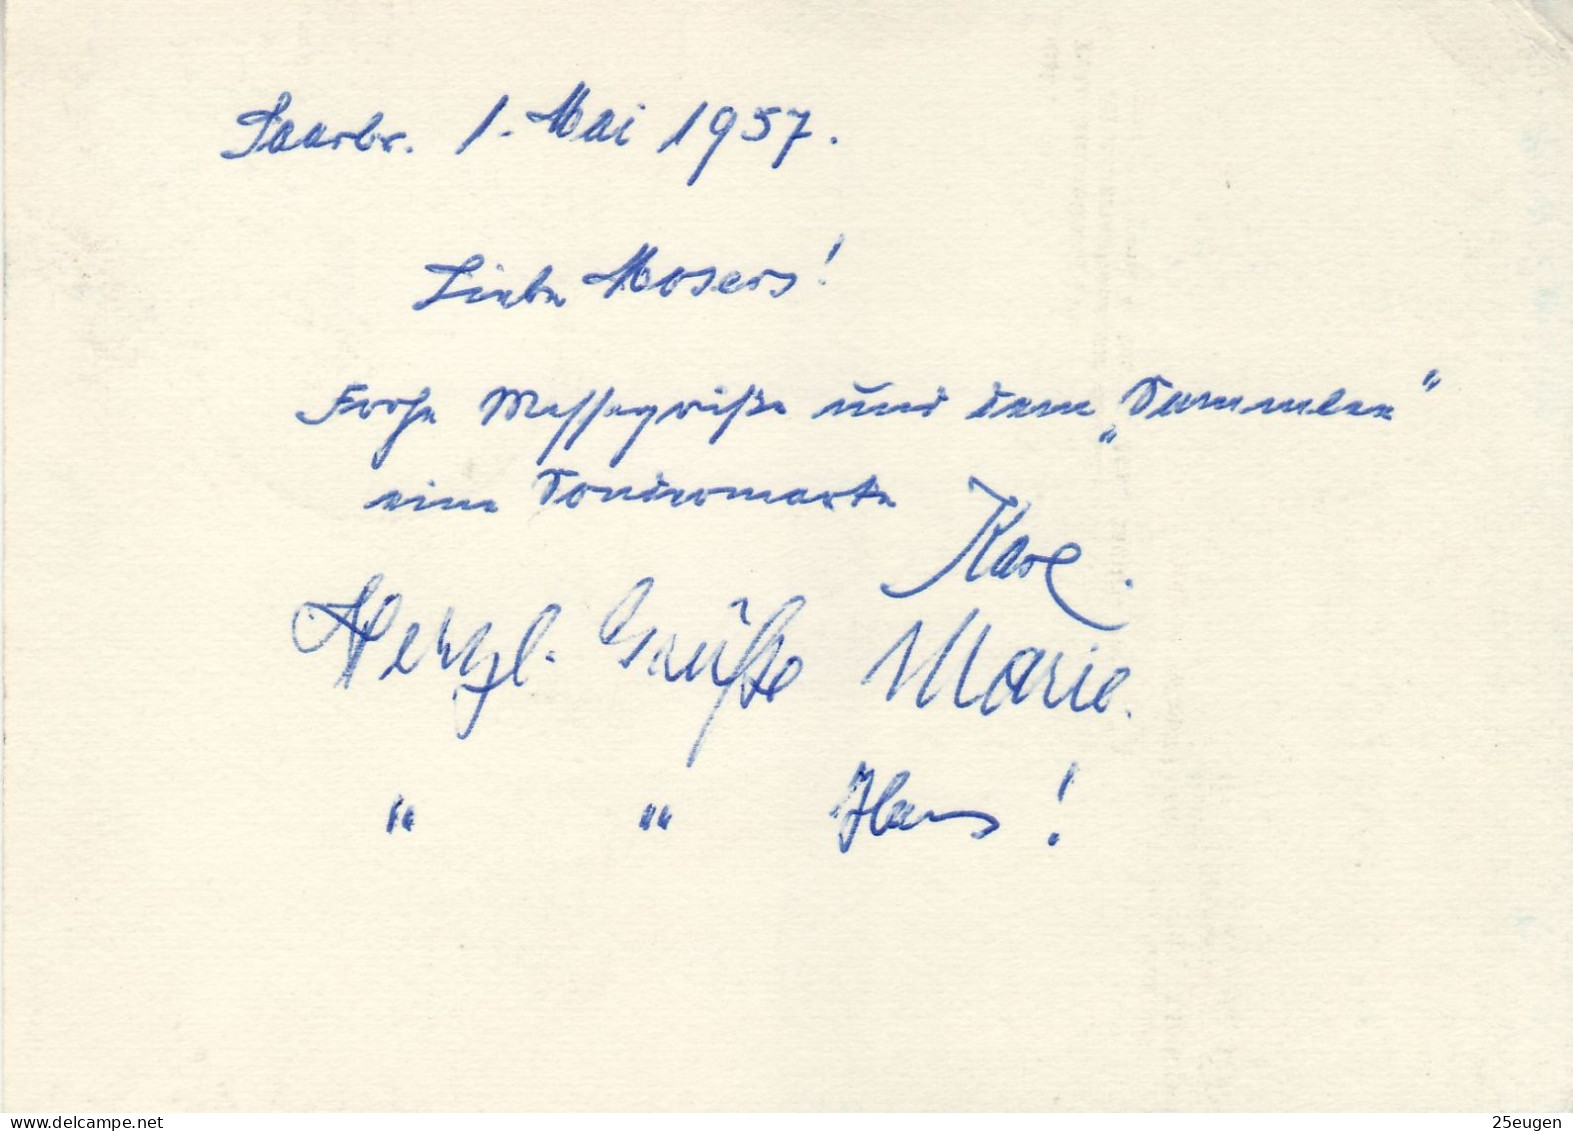 Saarbr. 1. Mai 1957.
Liebe Mosers!
Frohe Messegrüße und dem „Sammler“
eine Sondermarke
Karl.
Herzl. Grüße Marie.
" " Hans!
delcampe.net
25eugen